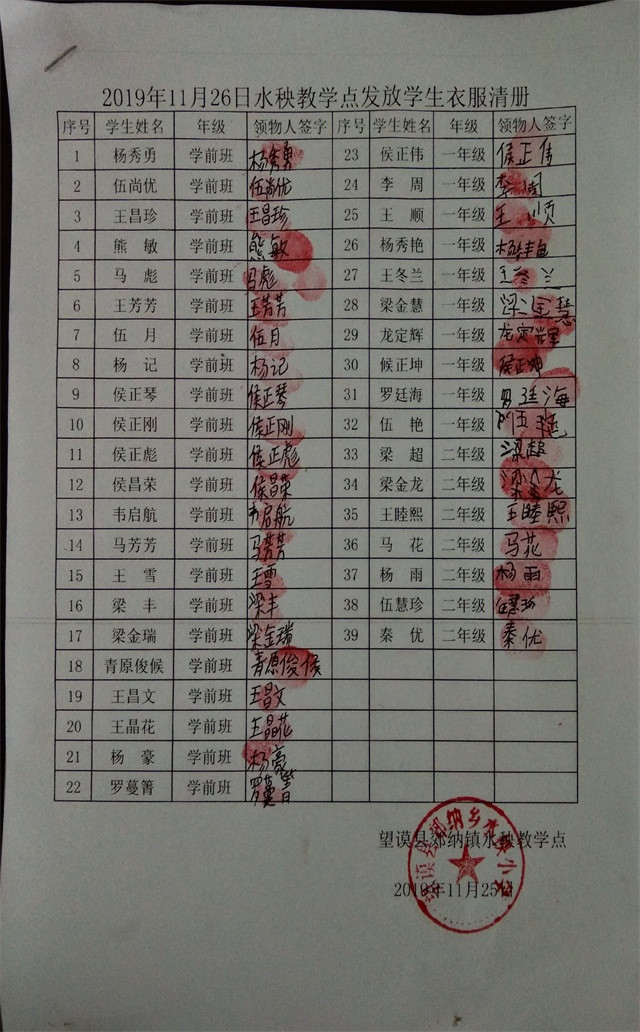 2019年11月26日水秧教学点发放学生衣服清册
序号 学生姓名 年级 领物人签字 序号 学生姓名 年级 领物人签字
1 杨秀勇 学前班 杨秀勇 23 侯正伟 一年级 侯正伟
2 伍尚优 学前班 伍尚优 24 李周 一年级 李周
3 王昌珍 学前班 王昌珍 25 王顺 一年级 王顺
4 熊敏 学前班 熊敏 26 杨秀艳 一年级
5 马彪 学前班 马彪 27 王冬兰 一年级 王冬兰
6 王芳芳 学前班 王芳芳 28 梁金慧 一年级 梁金慧
7 伍月 学前班 伍月 29 龙定辉 一年级 龙定辉
8 杨记 学前班 杨记 30 候正坤 一年级 候正坤
9 侯正琴 学前班 侯正琴 31 罗廷海 一年级 罗廷海
10 侯正刚 学前班 侯正刚 32 伍艳 一年级
11 侯正彪 学前班 侯正彪 33 梁超 二年级 梁超
12 侯昌荣 学前班 侯昌荣 34 梁金龙 二年级 梁金龙
13 韦启航 学前班 韦启航 35 王睦熙 二年级 王睦熙
14 马芳芳 学前班 马芳芳 36 马花 二年级 马花
15 王雪 学前班 王雪 37 杨雨 二年级 杨雨
16 梁丰 学前班 梁丰 38 伍慧珍 二年级 伍慧珍
17 梁金瑞 学前班 梁金瑞 39 秦优 二年级 秦优
18 青原俊候 学前班 青原俊候
19 王昌文 学前班 王昌文
20 王晶花 学前班 王晶花
21 杨豪 学前班 杨豪
22 罗蔓箐 学前班 罗蔓箐
望谟县郊纳镇水秧教学点
2019年11月25日